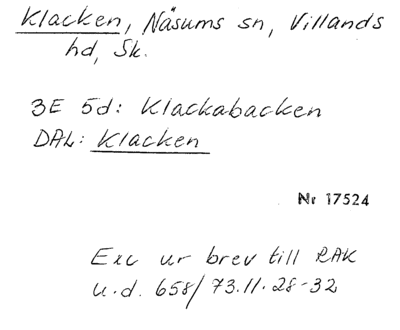 Klacken, Näsums sn, Villands
hd, Sk.
3E 5d: Klackabacken
DAL: Klacken
Nr 17524
Exc ur brev till RAK
u.d. 658/73.11.28-32